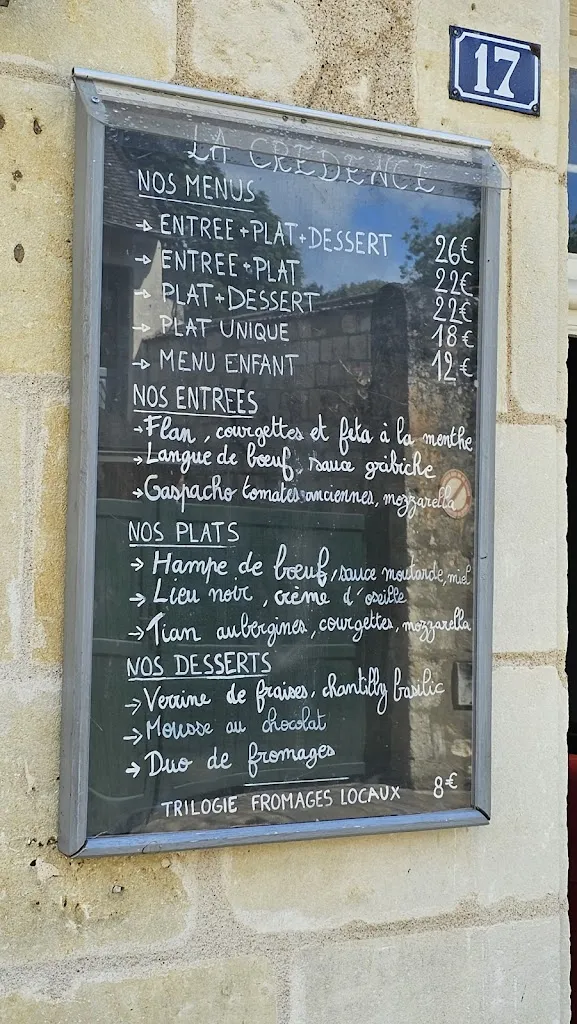 17
LA CREDENCE
NOS MENUS
→ ENTREE+PLAT+DESSERT 26€
→ ENTREE+PLAT 22€
→ PLAT+DESSERT 22€
→ PLAT UNIQUE 18€
→ MENU ENFANT 12€
NOS ENTREES
→ Flan, courgettes et feta à la menthe
→ Langue de bœuf, sauce gribiche
→ Gaspacho tomates anciennes, mozzarella
NOS PLATS
→ Hampe de bœuf, sauce moutarde, miel
→ Lieu noir, crème d'oseille
→ Tian aubergines, courgettes, mozzarella
NOS DESSERTS
→ Verrine de fraises, chantilly basilic
→ Mousse au chocolat
→ Duo de fromages
TRILOGIE FROMAGES LOCAUX 8€